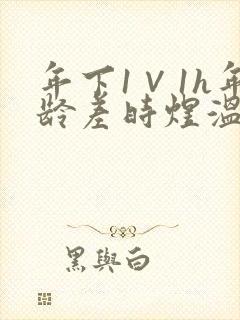 年下1V1h年
龄差时煜温
黑與白